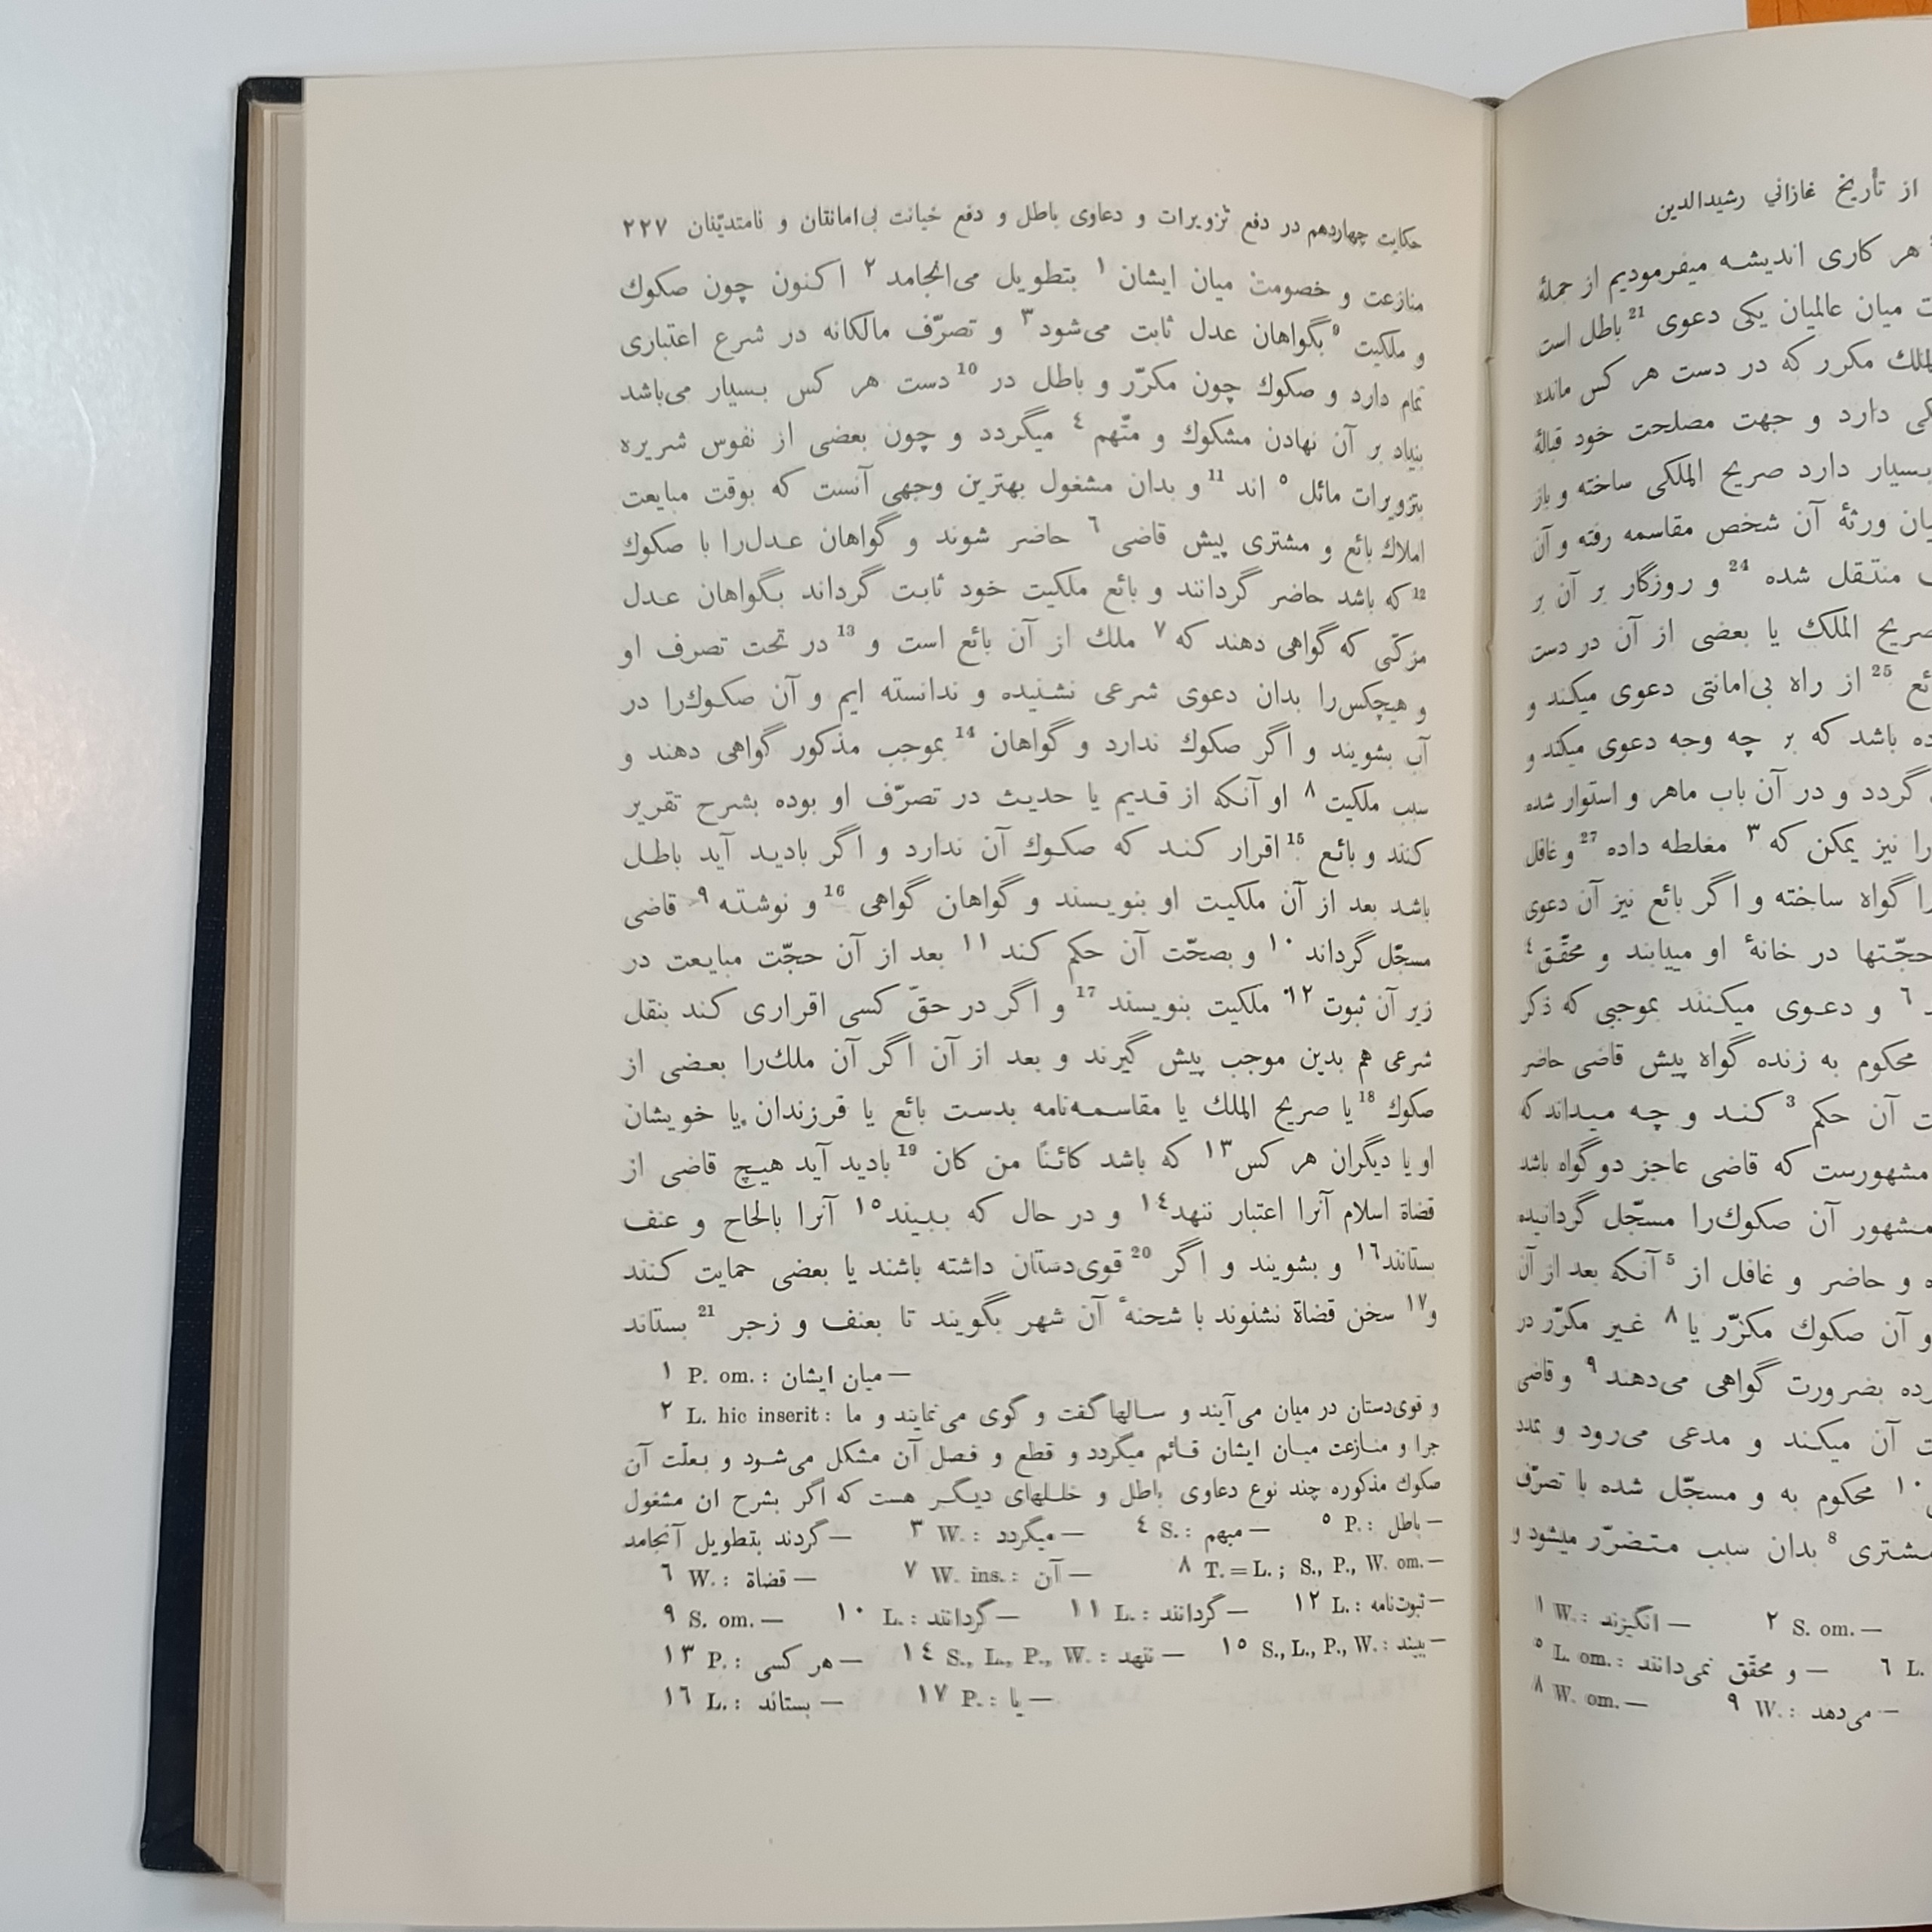 حکایت چهاردهم در دفع تزویرات و دعاوی باطل و دفع خیانت بی‌امانتان و نامتدیّنان ٢٢٧
منازعت و خصومت میان ایشان ١ بتطویل می‌انجامد ٢ اکنون چون صکوك
و ملکیت 9 بگواهان عدل ثابت می‌شود ٣ و تصرّف مالکانه در شرع اعتباری
تمام دارد و صکوك چون مکرّر و باطل در 10 دست هر کس بسیار می‌باشد
بنیاد بر آن نهادن مشکوك و متّهم ٤ میگردد و چون بعضی از نفوس شریره
بتزویرات مائل ٥ اند 11 و بدان مشغول بهترین وجهی آنست که بوقت مبایعت
املاك بائع و مشتری پیش قاضی ٦ حاضر شوند و گواهان عدل‌را با صکوك
12 که باشد حاضر گردانند و بائع ملکیت خود ثابت گرداند بگواهان عدل
مزکّی که گواهی دهند که ٧ ملك از آن بائع است و 13 در تحت تصرف او
و هیچکس‌را بدان دعوی شرعی نشنیده و ندانسته ایم و آن صکوك‌را در
آب بشویند و اگر صکوك ندارد و گواهان 14 بموجب مذکور گواهی دهند و
سبب ملکیت ٨ او آنکه از قدیم یا حدیث در تصرّف او بوده بشرح تقریر
کنند و بائع 15 اقرار کند که صکوك آن ندارد و اگر بادید آید باطل
باشد بعد از آن ملکیت او بنویسند و گواهان گواهی 16 و نوشته ٩ قاضی
مسجّل گرداند ١٠ و بصحّت آن حکم کند ١١ بعد از آن حجّت مبایعت در
زیر آن ثبوت ١٢ ملکیت بنویسند 17 و اگر در حقّ کسی اقراری کند بنقل
شرعی هم بدین موجب پیش گیرند و بعد از آن اگر آن ملك‌را بعضی از
صکوك 18 یا صریح الملك یا مقاسمه‌نامه بدست بائع یا فرزندان یا خویشان
او یا دیگران هر کس ١٣ که باشد کائنًا من کان 19 بادید آید هیچ قاضی از
قضاة اسلام آنرا اعتبار ننهد ١٤ و در حال که ببیند ١٥ آنرا بالحاح و عنف
بستانند ١٦ و بشویند و اگر 20 قوی‌دستان داشته باشند یا بعضی حمایت کنند
و ١٧ سخن قضاة نشنوند با شحنهٔ آن شهر بگویند تا بعنف و زجر 21 بستاند
١ P. om.: میان ایشان —
٢ L. hic inserit: و قوی‌دستان در میان می‌آیند و سالها گفت و گوی می‌نمایند و ما
جرا و منازعت میان ایشان قائم میگردد و قطع و فصل آن مشکل می‌شود و بعلّت آن
صکوك مذکوره چند نوع دعاوی باطل و خللهای دیگر هست که اگر بشرح ان مشغول
گردند بتطویل آنجامد — ٣ W.: میگردد — ٤ S.: مبهم — ٥ P.: باطل —
٦ W.: قضاة — ٧ W. ins.: آن — ٨ T. = L.; S., P., W. om. —
٩ S. om. — ١٠ L.: گردانند — ١١ L.: گردانند — ١٢ L.: ثبوت‌نامه —
١٣ P.: هر کسی — ١٤ S., L., P., W.: ننهد — ١٥ S., L., P., W.: ببیند —
١٦ L.: بستاند — ١٧ P.: یا —
از تأریخ غازانی رشیدالدین
هر کاری اندیشه میفرمودیم از جملهٔ
میان عالمیان یکی دعوی 21 باطل است
مکرر که در دست هر کس مانده
دارد و جهت مصلحت خود قبالهٔ
بسیار دارد صریح الملکی ساخته و باز
ورثهٔ آن شخص مقاسمه رفته و آن
منتقل شده 24 و روزگار بر آن بر
صریح الملك یا بعضی از آن در دست
25 از راه بی‌امانتی دعوی میکند و
باشد که بر چه وجه دعوی میکند و
گردد و در آن باب ماهر و استوار شده
را نیز یمکن که ٣ مغلطه داده 27 و غافل
را گواه ساخته و اگر بائع نیز آن دعوی
حجّتها در خانهٔ او مییابند و محقّق ٤
٦ و دعوی میکنند بموجبی که ذکر
محکوم به زنده گواه پیش قاضی حاضر
آن حکم 3 کند و چه میداند که
مشهورست که قاضی عاجز دو گواه باشد
مشهور آن صکوك‌را مسجّل گردانیده
و حاضر و غافل از 5 آنکه بعد از آن
و آن صکوك مکرّر یا ٨ غیر مکرّر در
بضرورت گواهی می‌دهند ٩ و قاضی
آن میکند و مدعی می‌رود و بمدد
١٠ محکوم به و مسجّل شده با تصرّف
مشتری 8 بدان سبب متضرّر میشود و
١ W.: انگیزند — ٢ S. om. —
٥ L. om.: و محقّق نمی‌دانند — ٦ L.
٨ W. om. — ٩ W.: می‌دهد —